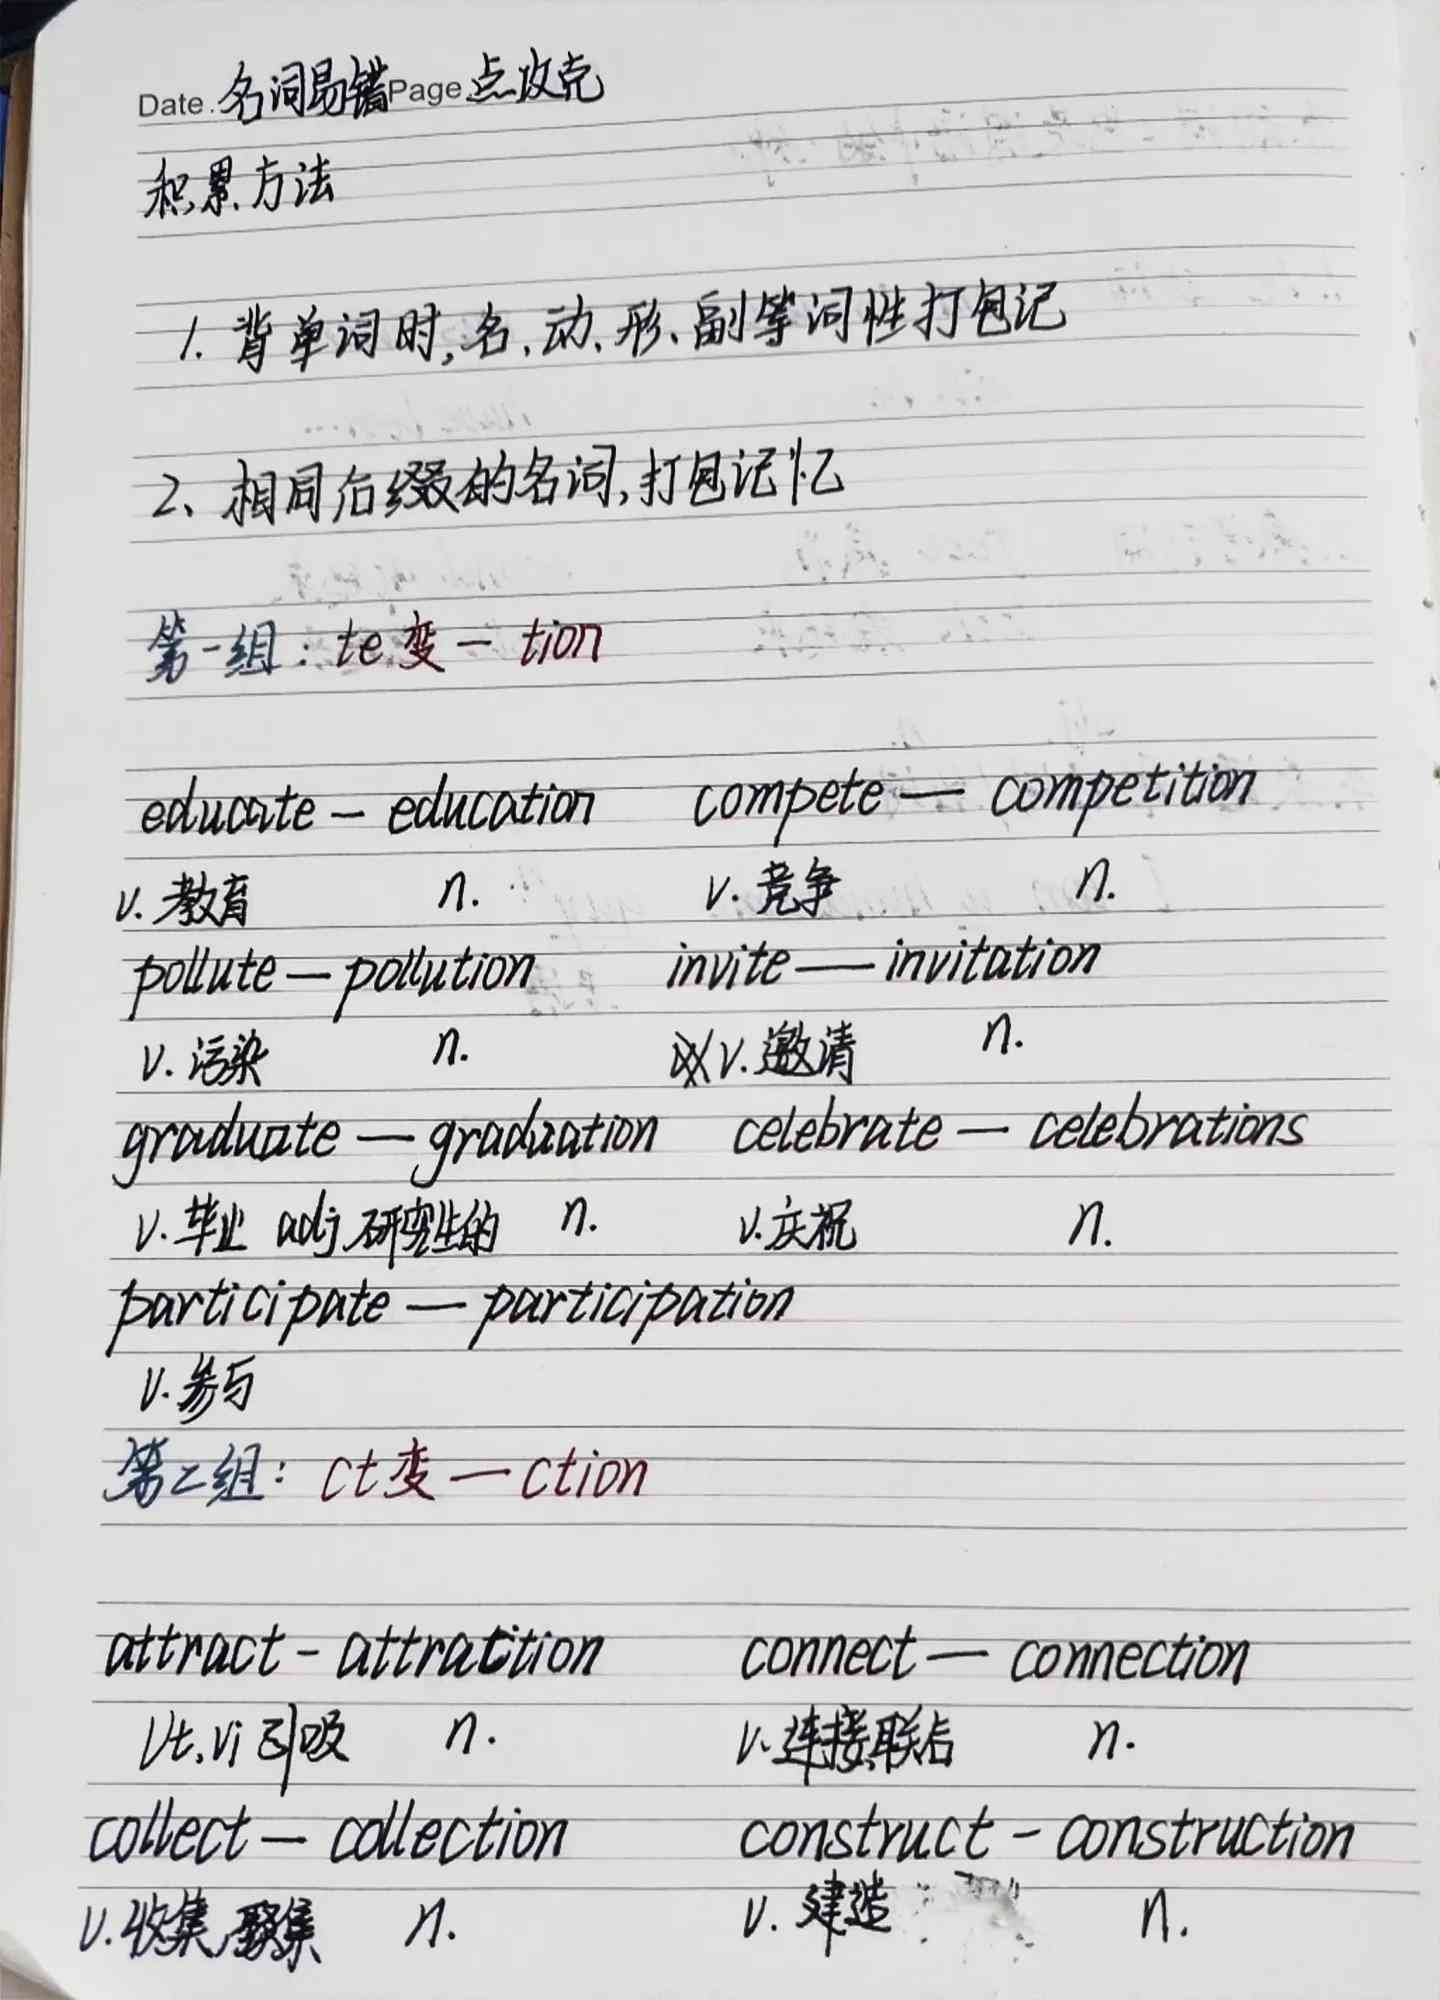 Date. 名词易错 Page 点攻克
积累方法
1. 背单词时,名、动、形、副等词性打包记
2、相同后缀的名词,打包记忆
第一组: te变 — tion
educate — education compete — competition
v. 教育 n. v. 竞争 n.
pollute — pollution invite — invitation
v. 污染 n. v. 邀请 n.
graduate — graduation celebrate — celebrations
v. 毕业 adj 研究生的 n. v. 庆祝 n.
participate — participation
v. 参与
第二组: ct变 — ction
attract - attraction connect — connection
Vt, vi 引吸 n. v. 连接,联结 n.
collect — collection construct - construction
v. 收集,聚集 n. v. 建造 n.